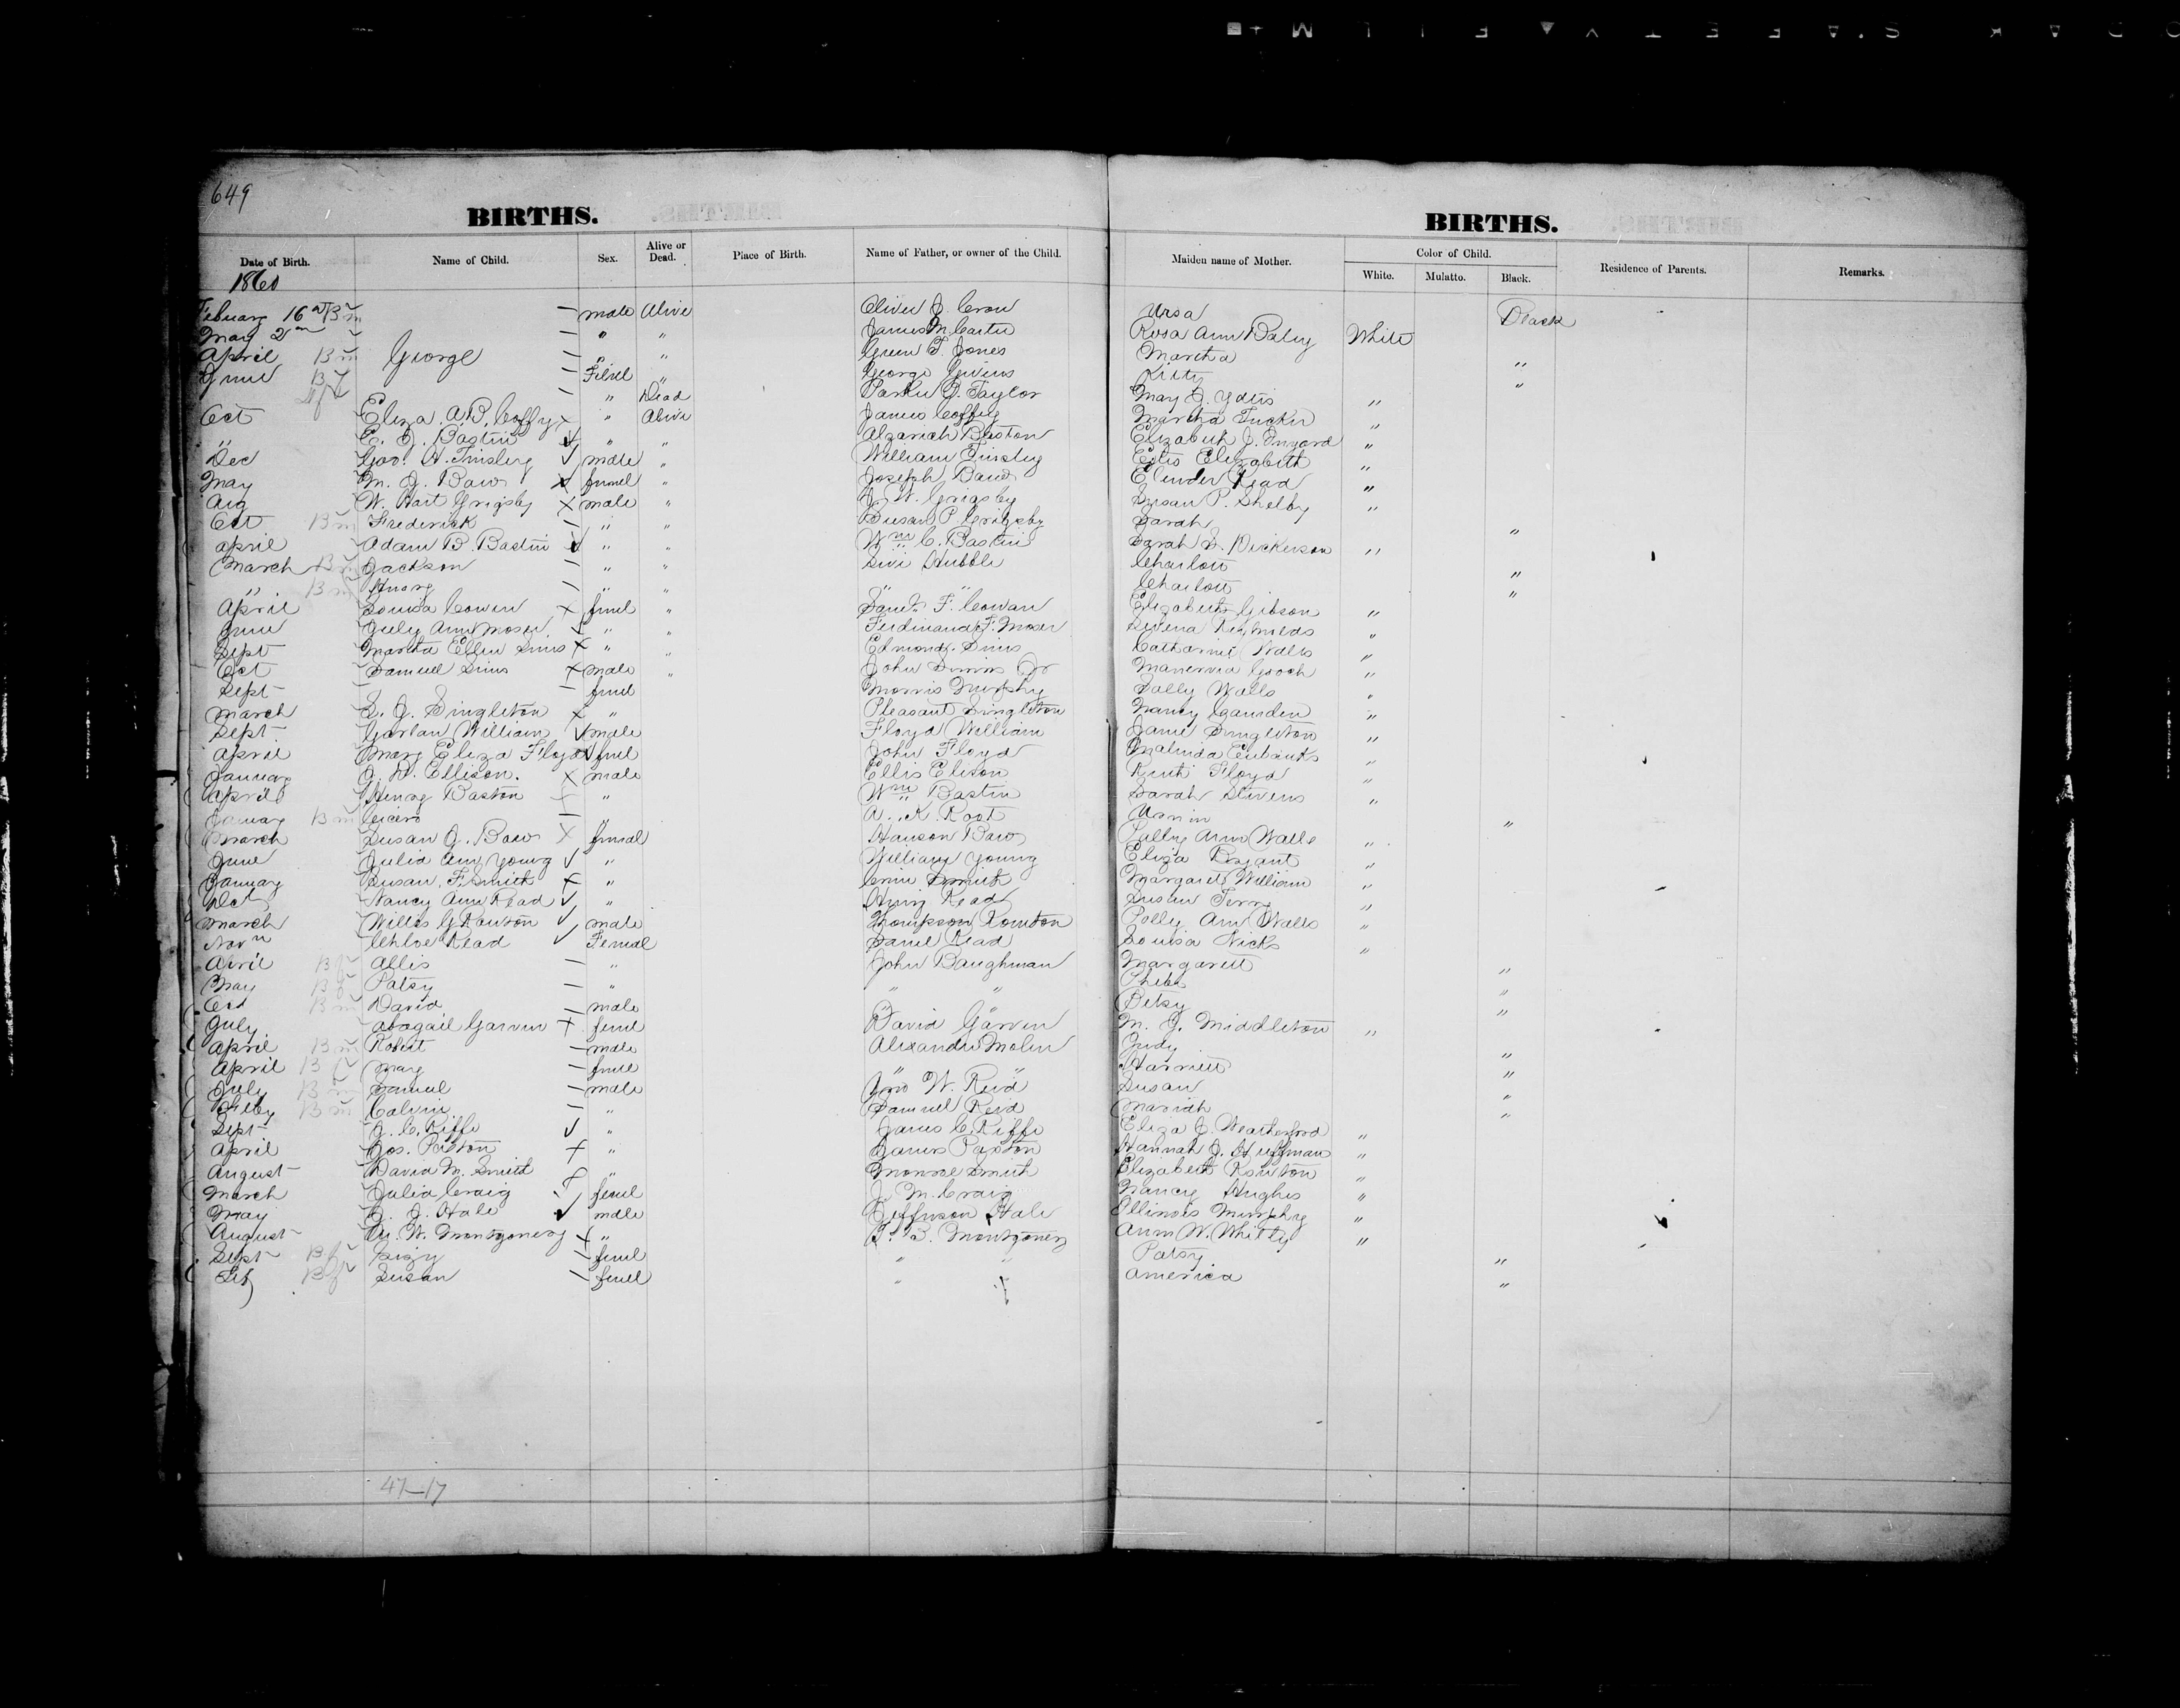 649
BIRTHS. BIRTHS.
Date of Birth. Name of Child. Sex. Alive or Dead. Place of Birth. Name of Father, or owner of the Child. Maiden name of Mother. Color of Child. White. Mulatto. Black. Residence of Parents. Remarks.
1860
Febuary 16 Bm — male Alive Oliver J. Crow Ursa Black
May 2 — " " James M. Carter Rosa Ann Baley White
April Bm George — " " Green T. Jones Martha "
June Bf — Femel " George Givens Kitty "
— " Dead Parker G. Taylor May J. Yates "
Oct Eliza A. B. Coffy x " Alive James Coffey Martha Tucker "
" E. J. Bastin √ " " Baston Elizabeth J. "
Dec Geo. A. Tinsley √ male " William Tinsley Estis Elizabeth "
May M. J. Baw x femel " Joseph Baw Elender Read "
Aug W. Hart Grigsby x male " J. W. Grigsby Susan P. Shelby "
Oct Bm Frederick — " " Susan P. Grigsby Sarah "
April Adam B. Bastin √ " " Wm C. Bastin Sarah S. Dickerson "
March Bm Jackson — " " Levi Hubble Charlott "
" Bm Henry — " " " " Charlott "
April Louisa Cowen x femel " Saml. F. Cowan Elizabeth Gibson "
June July Ann Moser √ " " Ferdinand F. Moser Reynolds "
Sept Martha Ellen Sims x " " Edmond Sims Catharine Walls "
Oct Samuel Sims x male " John Sims Jr Manervia Gooch "
Sept — — femel Morris Murphy Sally Walls "
March S. J. Singleton x " Pleasant Singleton Nancy "
Sept Garlan William √ male Floyd William Jane Singleton "
April Mary Eliza Floyd √ femel John Floyd Malinda Eubanks "
January J. W. Ellison. x male Ellis Elison Ruth Floyd "
April Henry Baston " Wm Bastin Sarah Stevens "
January Bm Cicero — " A. K. Root "
March Susan J. Baw x femal Hanson Baw Sally Ann Walls "
June Julia Ann Young √ " William Young Eliza Bryant "
January Susan F. Smith x " Smith Margaret William "
Oct Nancy Ann Read √ " Henry Read Susan Terry "
March Willis G Rowton √ male Thompson Rowton Polly Ann Walls "
Novm Chloe Read √ Femal Daniel Read Louisa Hicks "
April Bf Allis — " John Baughman Margarett "
May Bf Patsy — " " " Pheba "
Oct Bm David — male " Betsy "
July Abagail Garven x femel David Garven M. J. Middleton "
April Bm Robert — male Alexander Molen Judy "
April Bf Mary — femel " " Harriett "
July Bm Samuel — male Jno W. Reid Susan "
Feby Bm Calvin — " Samuel Reid Mariah "
Sept J. C. Riffe √ " James C. Riffe Eliza J. Weatherford "
April Jos. Paxton x " James Paxton Hannah J. Huffman "
August David M. Smith " Monroe Smith Elizabeth Rowton "
March Julia Craig √ femel J. M. Craig Nancy Hughes "
May J. J. Hale √ male Jefferson Hale Illinois Murphy "
August W. Montgomery x " T. B. Montgomery Ann W. Whitly "
Sept Bf — femel " " Patsy "
Bf Susan — femel " America "
47—17